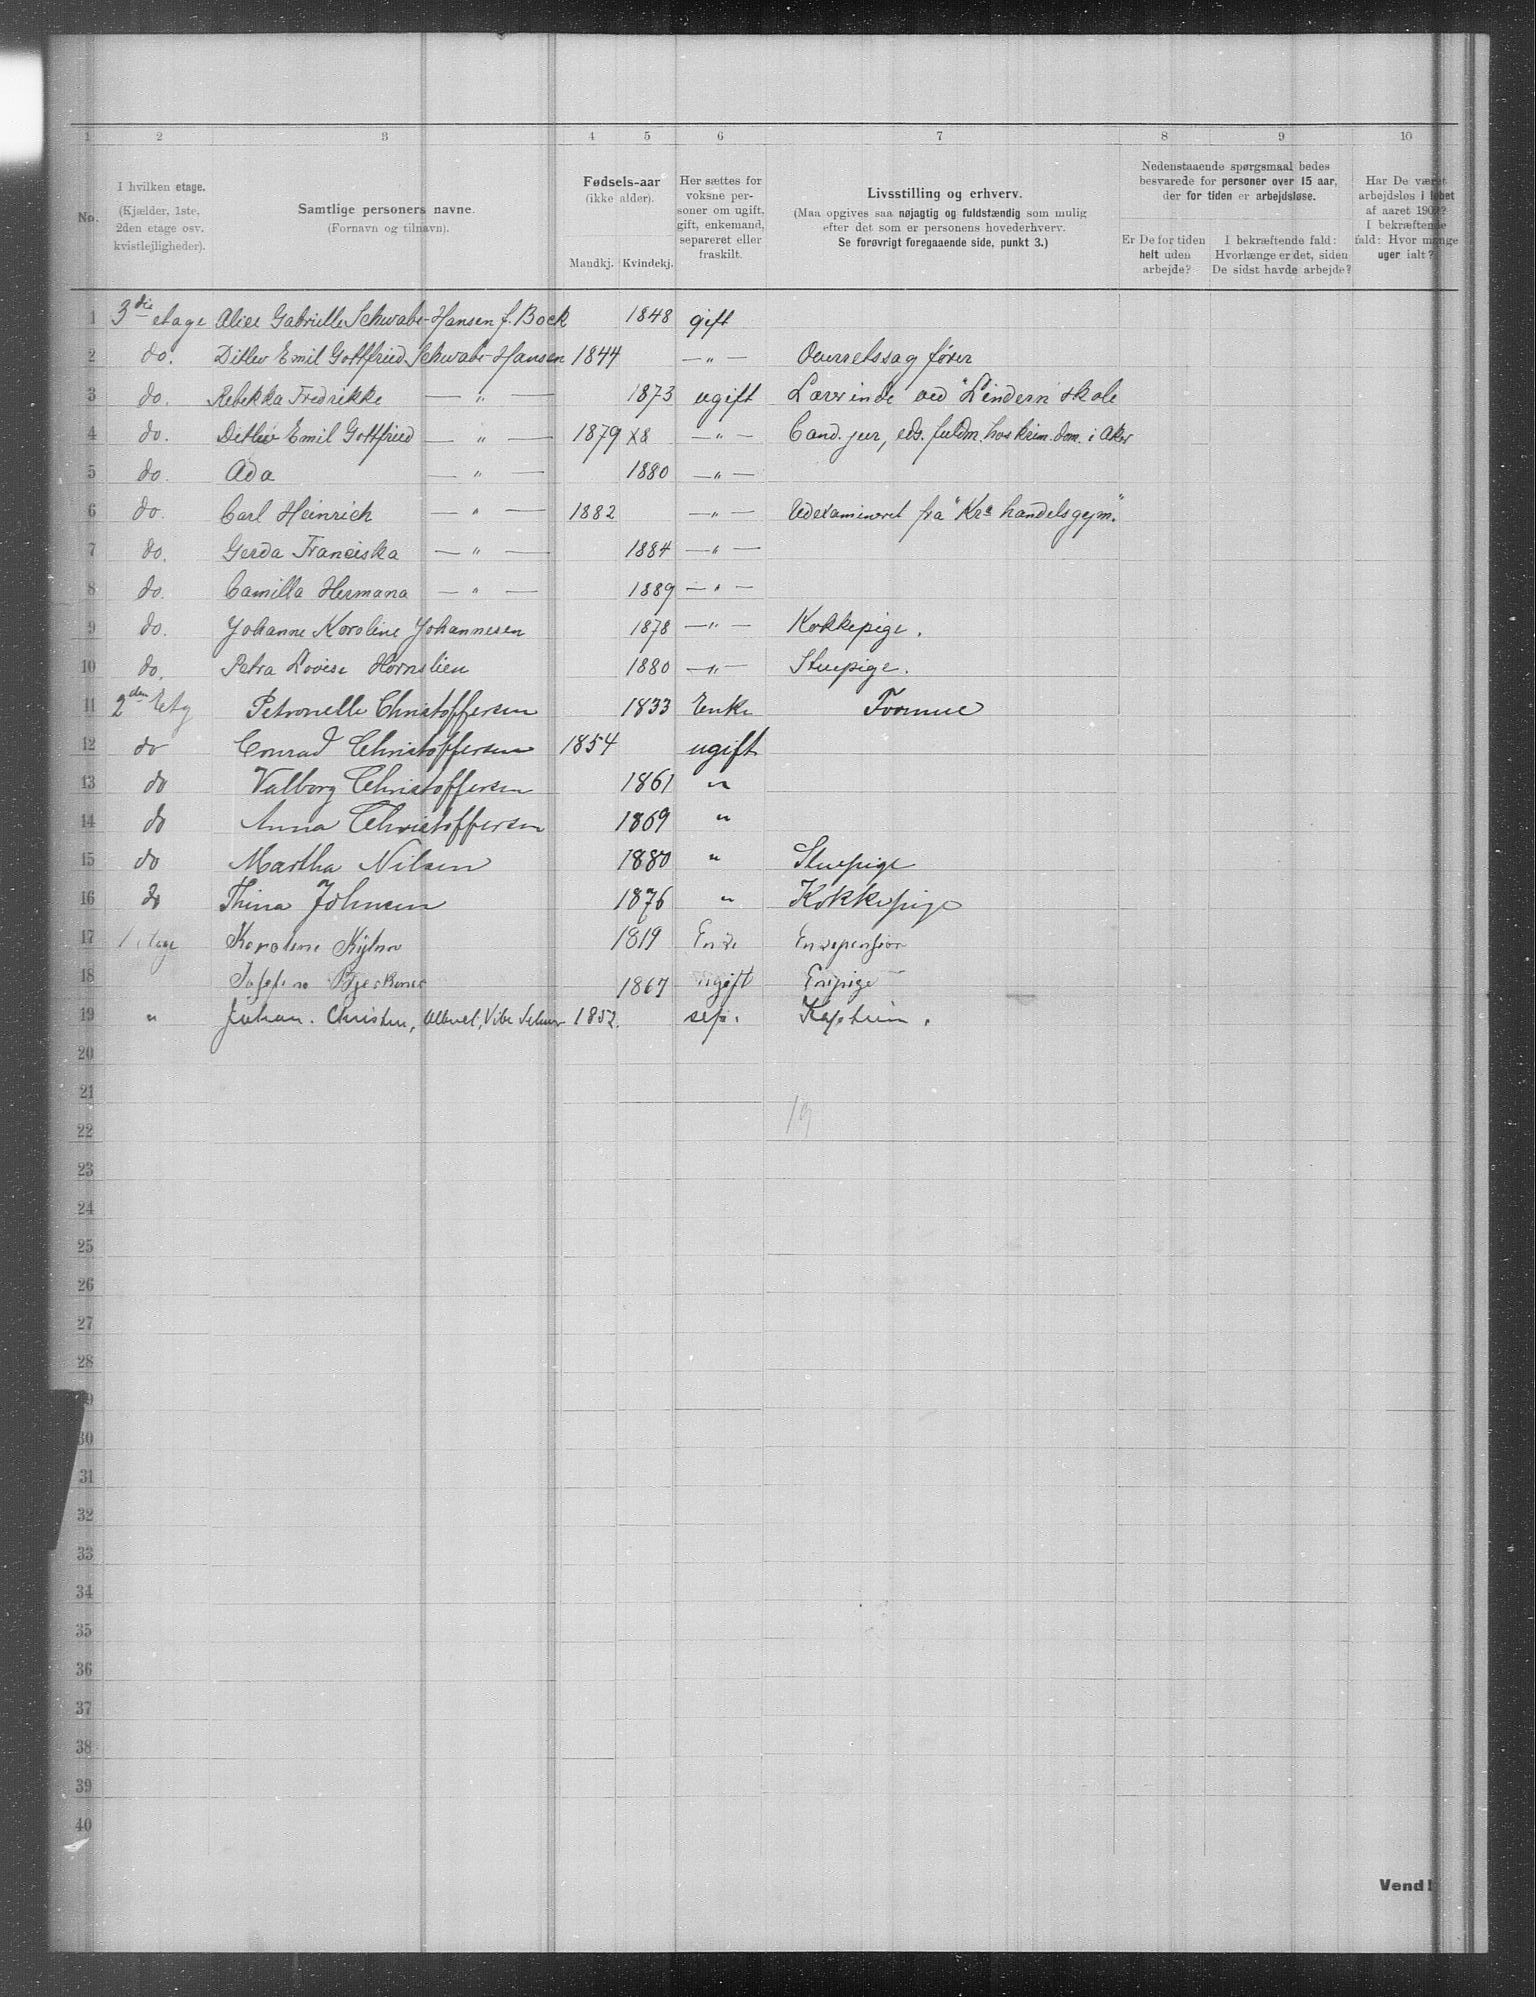 1 2 3 4 5 6 7 8 9 10
No.
I hvilken etage.
(Kjælder, 1ste,
2den etage osv.
kvistlejligheder).
Samtlige personers navne.
(Fornavn og tilnavn).
Fødsels-aar
(ikke alder).
Mandkj. Kvindekj.
Her sættes for
voksne per-
soner om ugift,
gift, enkemand,
separeret eller
fraskilt.
Livsstilling og erhverv.
(Maa opgives saa nøjagtig og fuldstændig som mulig
efter det som er personens hovederhverv.
Se forøvrigt foregaaende side, punkt 3.)
Nedenstaaende spørgsmaal bedes
besvarede for personer over 15 aar,
der for tiden er arbejdsløse.
Er De for tiden
helt uden
arbejde?
I bekræftende fald:
Hvorlænge er det, siden
De sidst havde arbejde?
Har De været
arbejdsløs i løbet
af aaret 1902?
I bekræftende
fald: Hvor mange
uger ialt?
1 3die etage Alice Gabrielle Schwabe-Hansen f. Bock 1848 gift
2 do. Ditlev Emil Gottfried Schwabe-Hansen 1844 —"— Overretssagfører
3 do. Rebekka Fredrikke —"— 1873 ugift Lærerinde ved "Lindern" skole
4 do. Ditlev Emil Gottfried —"— 1879 X8 —"— Cand. jur, eds. fuldm. hos krim. dom. i Aker
5 do. Ada —"— 1880 —"—
6 do. Carl Heinrich —"— 1882 —"— Udexamineret fra "Kra handelsgym."
7 do. Gerda Franciska —"— 1884 —"—
8 do. Camilla Hermana —"— 1889 —"—
9 do. Johanne Karoline Johannesen 1878 —"— Kokkepige.
10 do. Petra Lovise Hornslien 1880 —"— Stuepige.
11 2den Etg Petronelle Christoffersen 1833 Enke Formue
12 do Conrad Christoffersen 1854 ugift
13 do Valborg Christoffersen 1861 "
14 do Anna Christoffersen 1869 "
15 do Martha Nilsen 1880 " Stuepige
16 do Thina Johnsen 1876 " Kokkepige
17 1 etage Karoline 1819 Enke Enkepension
18 Josefine 1867 ugift Enepige
19 " Johan. Christian, Albret, Vibe 1852. sep. Kaptein.
20
21
22
19
23
24
25
26
27
28
29
30
31
32
33
34
35
36
37
38
39
40
Vend!